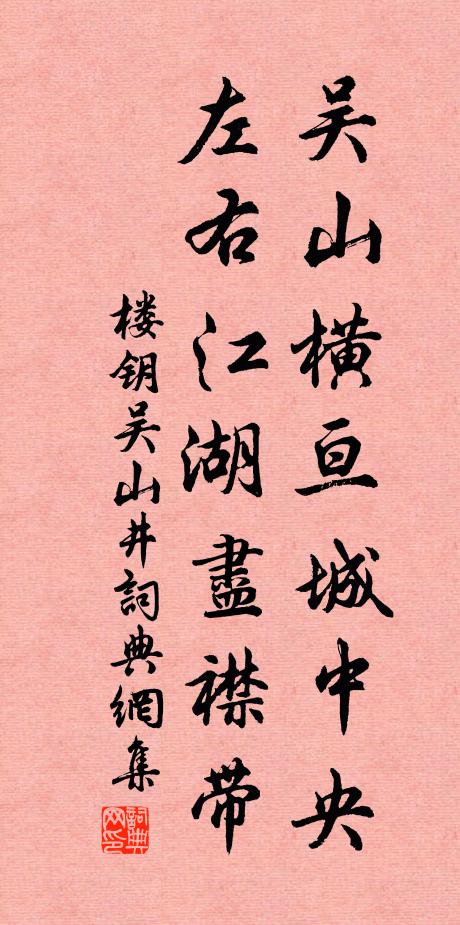 吴山横亘城中央
左右江湖盡襟带
楼钥吴山井詞典網集
詞典网印